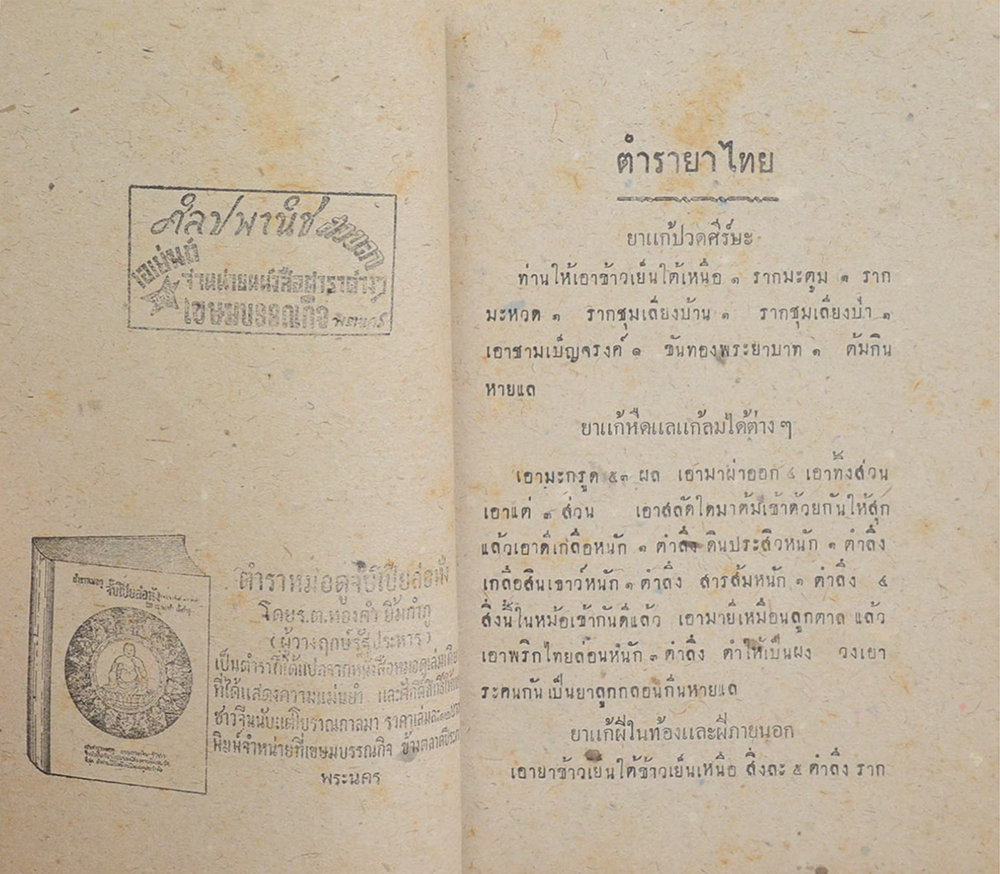 ศิลปพานิช
เอเย่นต์
จำหน่ายหนังสือตำราต่างๆ
เขษมบรรณกิจ
ตำราหมอดูจับโป๊ยล่อฮั่ง
โดยร.ต.ทองคำ ยิ้มกำภู
(ผู้วางฤกษ์รัฐประหาร)
เป็นตำราที่ได้แปลจากหนังสือหมอดูเล่มเดีย
ที่ได้แสดงความแม่นยำ และศักดิ์สิทธิ์
ชาวจีนนับแต่โบราณกาลมา ราคาเล่มละ
พิมพ์จำหน่ายที่เขษมบรรณกิจ ข้างตลาด
พระนคร
ตำรายาไทย
ยาแก้ปวดศีร์ษะ
ท่านให้เอาข้าวเย็นใต้เหนือ ๑ รากมะตูม ๑ ราก
มะหวด ๑ รากชุมเลียงบ้าน ๑ รากชุมเลียงป่า ๑
เอาชามเบ็ญจรงค์ ๑ ขันทองพระยาบาท ๑ ต้มกิน
หายแล
ยาแก้หืดแลแก้ลมได้ต่าง ๆ
เอามะกรูด ๕๓ ผล เอามาผ่าออก ๔ เอาทิ้งส่วน
เอาแต่ ๓ ส่วน เอาสลัดใดมาต้มเข้าด้วยกันให้สุก
แล้วเอาดีเกลือหนัก ๑ ตำลึง ดินประสิวหนัก ๑ ตำลึง
เกลือสินเธาว์หนัก ๑ ตำลึง สารส้มหนัก ๑ ตำลึง ๔
สิ่งนี้ในหม้อเข้ากันดีแล้ว เอามายีเหมือนลูกตาล แล้ว
เอาพริกไทยล่อนหนัก ๓ ตำลึง ตำให้เป็นผง จงเอา
ระคนกัน เป็นยาลูกกลอนกินหายแล
ยาแก้ฝีในท้องและฝีภายนอก
เอายาข้าวเย็นใต้ข้าวเย็นเหนือ สิ่งละ ๕ ตำลึง ราก